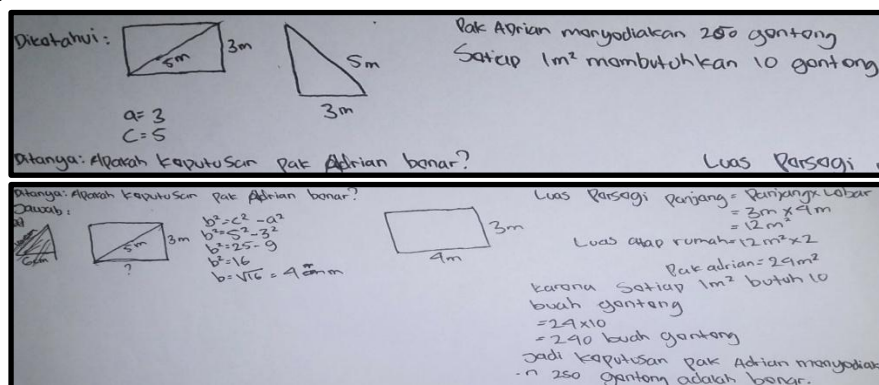 Diketahui:
5m
3m
5m
3m
a = 3
c = 5
Pak Adrian menyediakan 250 genteng
Setiap 1m² membutuhkan 10 genteng
Ditanya: Apakah keputusan pak Adrian benar?
Luas Persegi
Ditanya: Apakah keputusan pak Adrian benar?
Jawab:
5m
3m
?
b² = c² - a²
b² = 5² - 3²
b² = 25 - 9
b² = 16
b = √16 = 4 m
3m
4m
Luas Persegi Panjang = Panjang x Lebar
= 3m x 4m
= 12m²
Luas atap rumah = 12m² x 2
Pak adrian = 24m²
karena setiap 1m² butuh 10
buah genteng
= 24 x 10
= 240 buah genteng
Jadi keputusan pak Adrian menyediak
-n 250 genteng adalah benar.